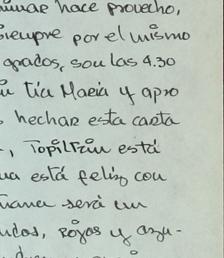 hace provecho,
siempre por el mismo
grados, son las 4.30
tía María y apro
hechar esta carta
, Topiltzin está
está feliz con
será un
rojas y azu-